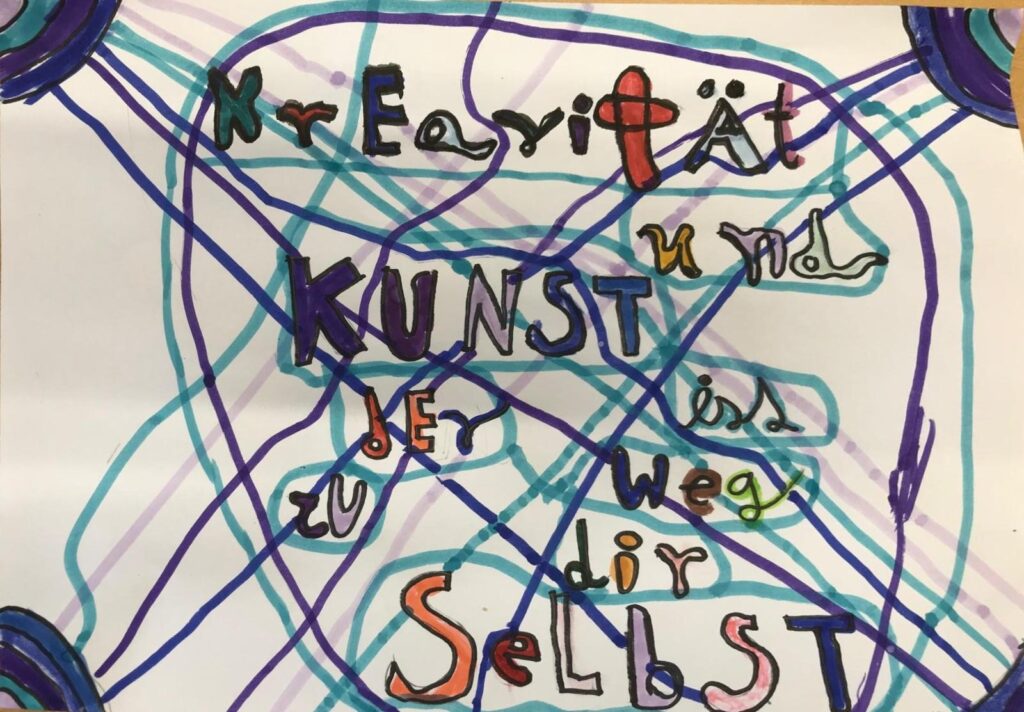 KrEavitÄt
und
KUNST
dEr iss
zU weg
dir
SeLbST